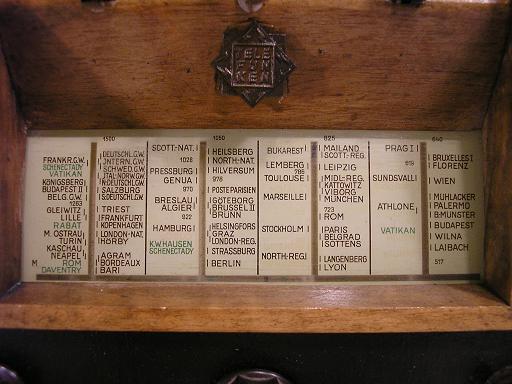 TELE
FUN
KEN
FRANKR.G.W.
SCHENECTADY
VATIKAN
KÖNIGSBERG
BUDAPEST II
1293
BELG.G.W.
GLEIWITZ
LILLE
RABAT
M.OSTRAU
TURIN
KASCHAU
NEAPEL
M ROM
DAVENTRY
1500
DEUTSCHL.G.W.
INTERN.G.W.
SCHWED.G.W.
ITAL-NORW.G.W.
N.DEUTSCHL.G.W.
SALZBURG
S.DEUTSCHL.G.W.
TRIEST
FRANKFURT
KOPENHAGEN
LONDON-NAT.
HÖRBY
AGRAM
BORDEAUX
BARI
SCOTT-NAT.
1028
PRESSBURG
GENUA
970
BRESLAU
ALGIER
922
HAMBURG
K.W.HAUSEN
SCHENECTADY
1050
HEILSBERG
NORTH-NAT.
HILVERSUM
978
POSTE PARISIEN
GÖTEBORG
BRÜSSEL II
BRÜNN
HELSINGFORS
GRAZ
LONDON-REG.
STRASSBURG
BERLIN
BUKAREST
LEMBERG
786
TOULOUSE
MARSEILLE
STOCKHOLM
NORTH-REG.
825
MAILAND
SCOTT-REG.
LEIPZIG
MIDL-REG.
KATTOWITZ
VIBORG
MÜNCHEN
723
ROM
PARIS
BELGRAD
SOTTENS
LANGENBERG
LYON
PRAG I
619
SUNDSVALL
ATHLONE
VATIKAN
640
BRUXELLES I
FLORENZ
WIEN
MÜHLACKER
PALERMO
B.MÜNSTER
BUDAPEST
WILNA
LAIBACH
517